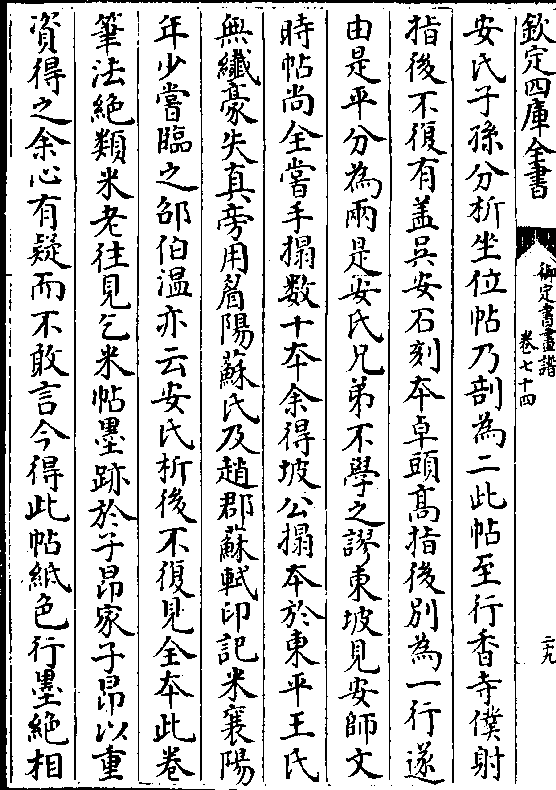 欽定四庫全書
御定書畫譜
卷七十四
二九
安氏子孫分析坐位帖乃剖為二此帖至行香寺僕射
指後不復有盖吳安石刻本卓頭髙指後别為一行遂
由是平分為兩是安氏兄弟不學之謬東坡見安師文
時帖尚全嘗手搨数十本余得坡公搨本於東平王氏
無纎豪失真旁用眉陽蘇氏及趙郡蘇軾印記米襄陽
年少嘗臨之邵伯温亦云安氏析後不復見全本此卷
筆法絶類米老往見乞米帖墨跡於子昂家子昂以重
資得之余心有疑而不敢言今得此帖紙色行墨絶相